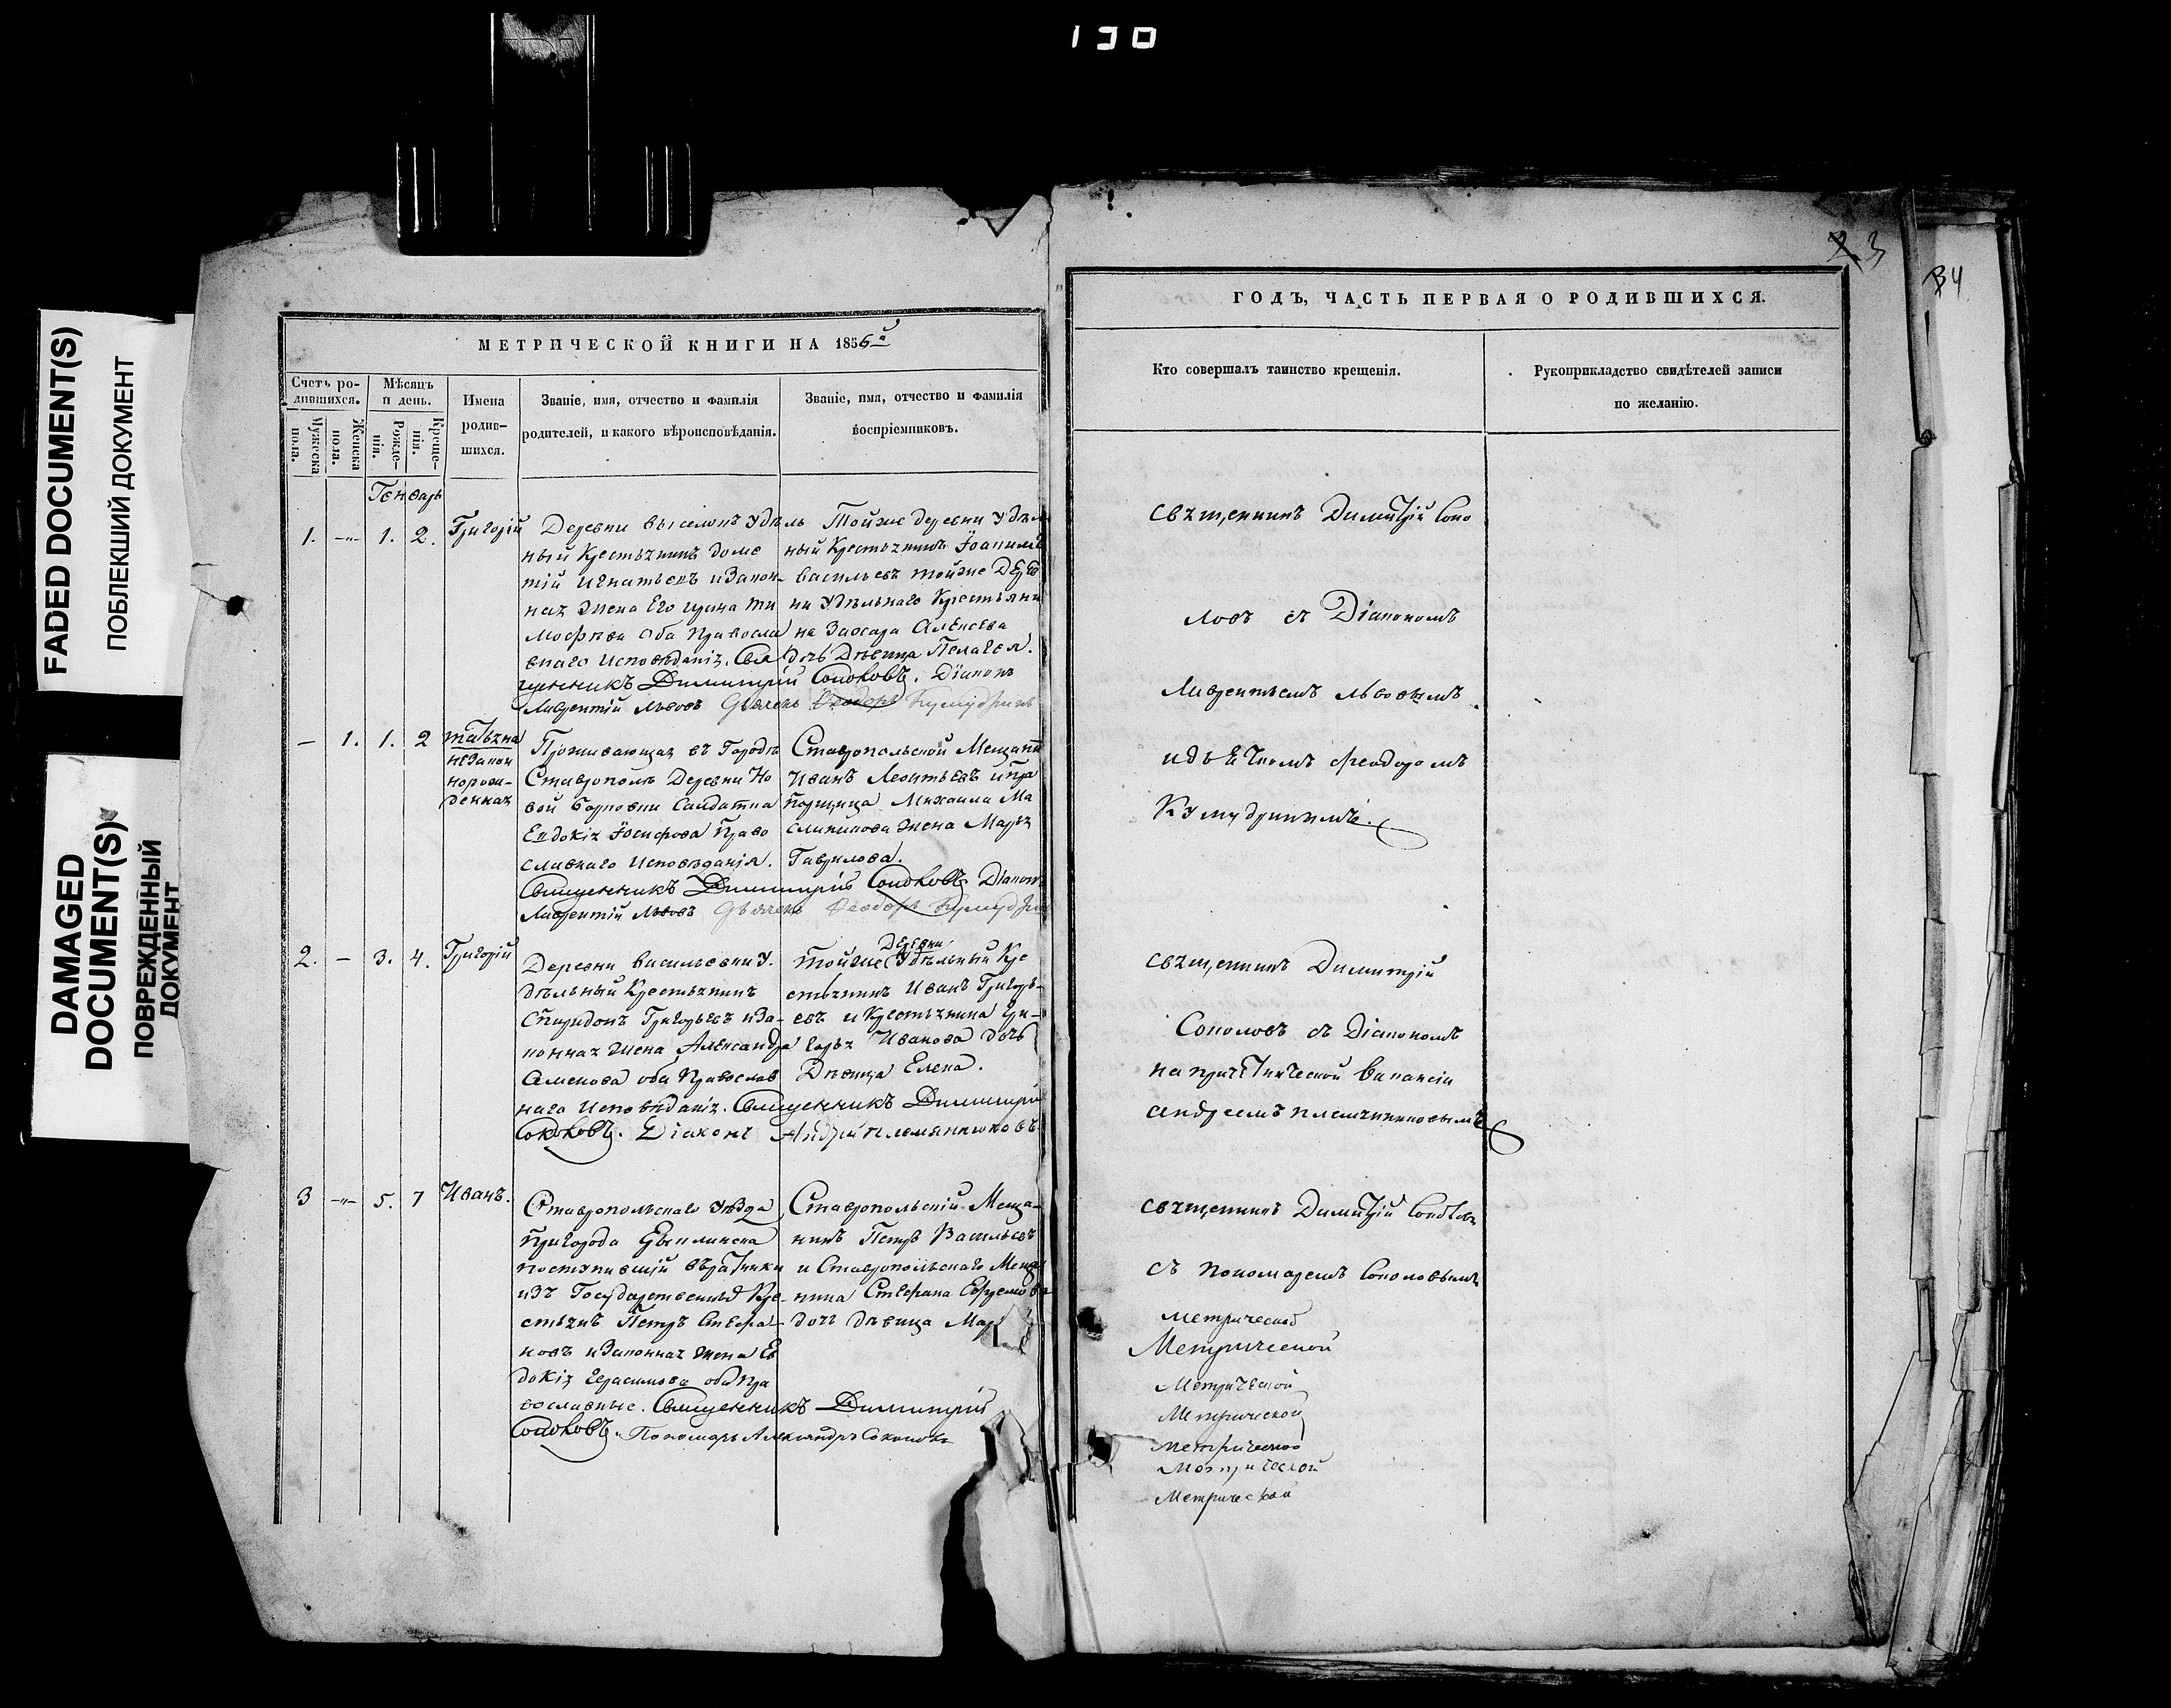 190
FADED DOCUMENT(S)
ПОБЛЕКШИЙ ДОКУМЕНТ
DAMAGED
DOCUMENT(S)
ПОВРЕЖДЕННЫЙ
ДОКУМЕНТ
МЕТРИЧЕСКОЙ КНИГИ НА 1856й
Счетъ ро-
дившихся.
Мужеска
пола.
Женска
пола.
Мѣсяцъ
и день.
Рожде-
нія.
Креще-
нія.
Имена
родив-
шихся.
Званіе, имя, отчество и фамилія
родителей, и какого вѣроисповѣданія.
Званіе, имя, отчество и фамилія
воспріемниковъ.
Генварь
1. -"- 1. 2. Григорій
Деревни выселокъ Удѣль
ный Крестьянинъ Доме
тій Игнатьевъ и Закон-
ная жена Его Ирина Ти
мофѣева оба Правосла
внаго Исповѣданія. Свя
щенникъ Димитрій Соколовъ. Діаконъ
Лаврентій Львовъ Дьячекъ Феодоръ Кумудринъ
Тойже деревни Удѣль
ный Крестьянинъ Іоакимъ
Васильевъ тойже Дерев
ни Удѣльнаго Крестьяни
на Захара Алексѣева
дочь Дѣвица Пелагея.
- 1. 1. 2 Татьяна
незакон
норож-
денная
Проживающая въ Городѣ
Ставрополѣ Деревни Но
вой Солдатка
Евдокія Іосифова Право
славнаго Исповѣданія.
Священникъ Димитрій Соколовъ Діаконъ
Лаврентій Львовъ Дьячекъ Феодоръ Кумудринъ
Ставропольской Мещани
Иванъ Леонтьевъ и Пра
порщица Михаила Ма
сленикова жена Марья
Гаврилова.
2. - 3. 4. Григорій
Деревни Васильевки У-
дѣльный Крестьянинъ
Спиридонъ Григорьевъ и За-
конная жена Александра
Семенова оба Православ
наго Исповѣданія. Священникъ Димитрій
Соколовъ. Діаконъ Андрей Племянниковъ
Деревни
Тойже Удѣльный Кре
стьянинъ Иванъ Григорь-
евъ и Крестьянина Гри-
горья Иванова дочь
Дѣвица Елена.
3 -"- 5. 7 Иванъ.
Ставропольскаго уѣзда
Пригорода
поступившій
изъ Государственныхъ Кре-
стьянъ Петръ Стефа-
новъ и Законная жена Ев
докія Герасимова оба Пра
вославные. Священникъ Димитрій
Соколовъ. Пономарь Александръ Соколовъ
Ставропольскій Меща-
нинъ Петръ Васильевъ
и Ставропольскаго Меща
нина Стефана Ефремова
дочь дѣвица
3
ГОДЪ, ЧАСТЬ ПЕРВАЯ О РОДИВШИХСЯ.
Кто совершалъ таинство крещенія.
Рукоприкладство свидѣтелей записи
по желанію.
Священникъ Димитрій Соко
ловъ съ Діакономъ
Лаврентьемъ Львовымъ
и дьячкомъ Феодоромъ
Кумудринымъ.
Священникъ Димитрій
Соколовъ съ Діакономъ
на причетнической вакансіи
Андреемъ Племянниковымъ
Священникъ Димитрій Соколовъ
съ Пономаремъ Соколовымъ
Метрической
Метрической
Метрической
Метрической
Метрической
Метрической
Метрической